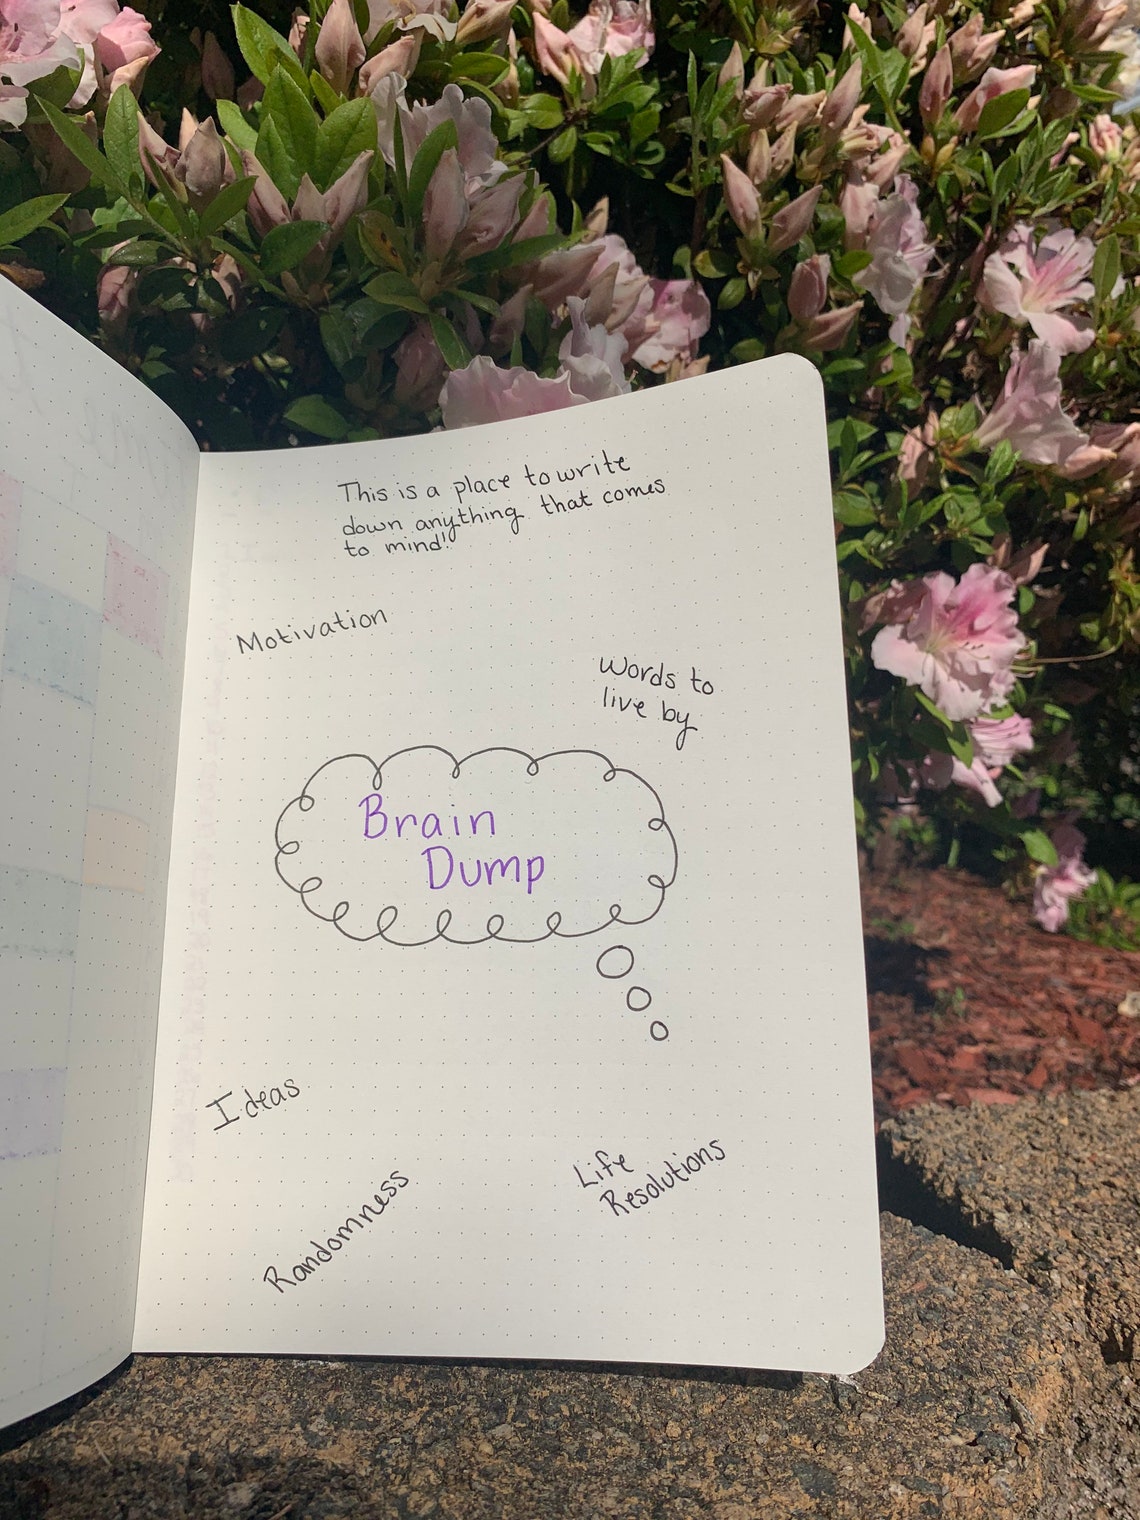 This is a place to write
down anything that comes
to mind!
Motivation
Words to
live by
Brain
Dump
Ideas
Life
Resolutions
Randomness